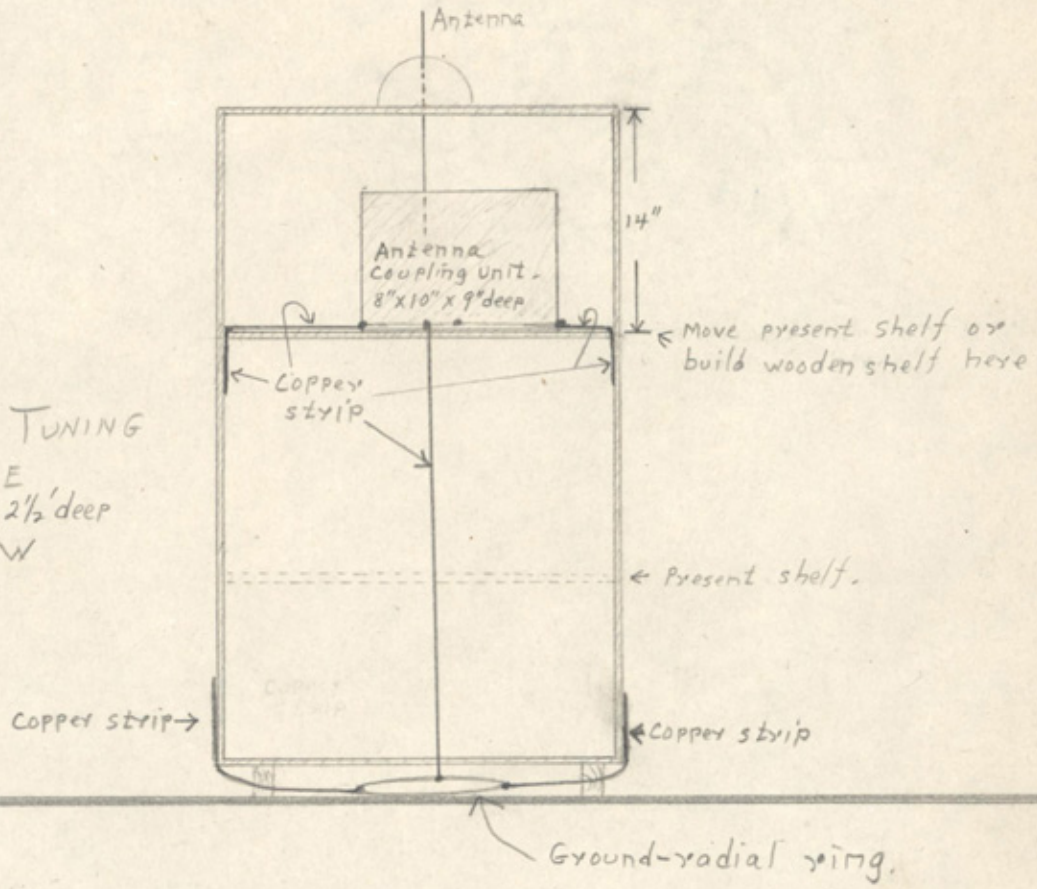 Antenna
14"
Antenna
Coupling unit.
8"x10" x 9"deep
Move present shelf or
build wooden shelf here
Copper
strip
TUNING
E
2½' deep
W
Present shelf.
Copper strip
Copper strip
Ground-radial ring.